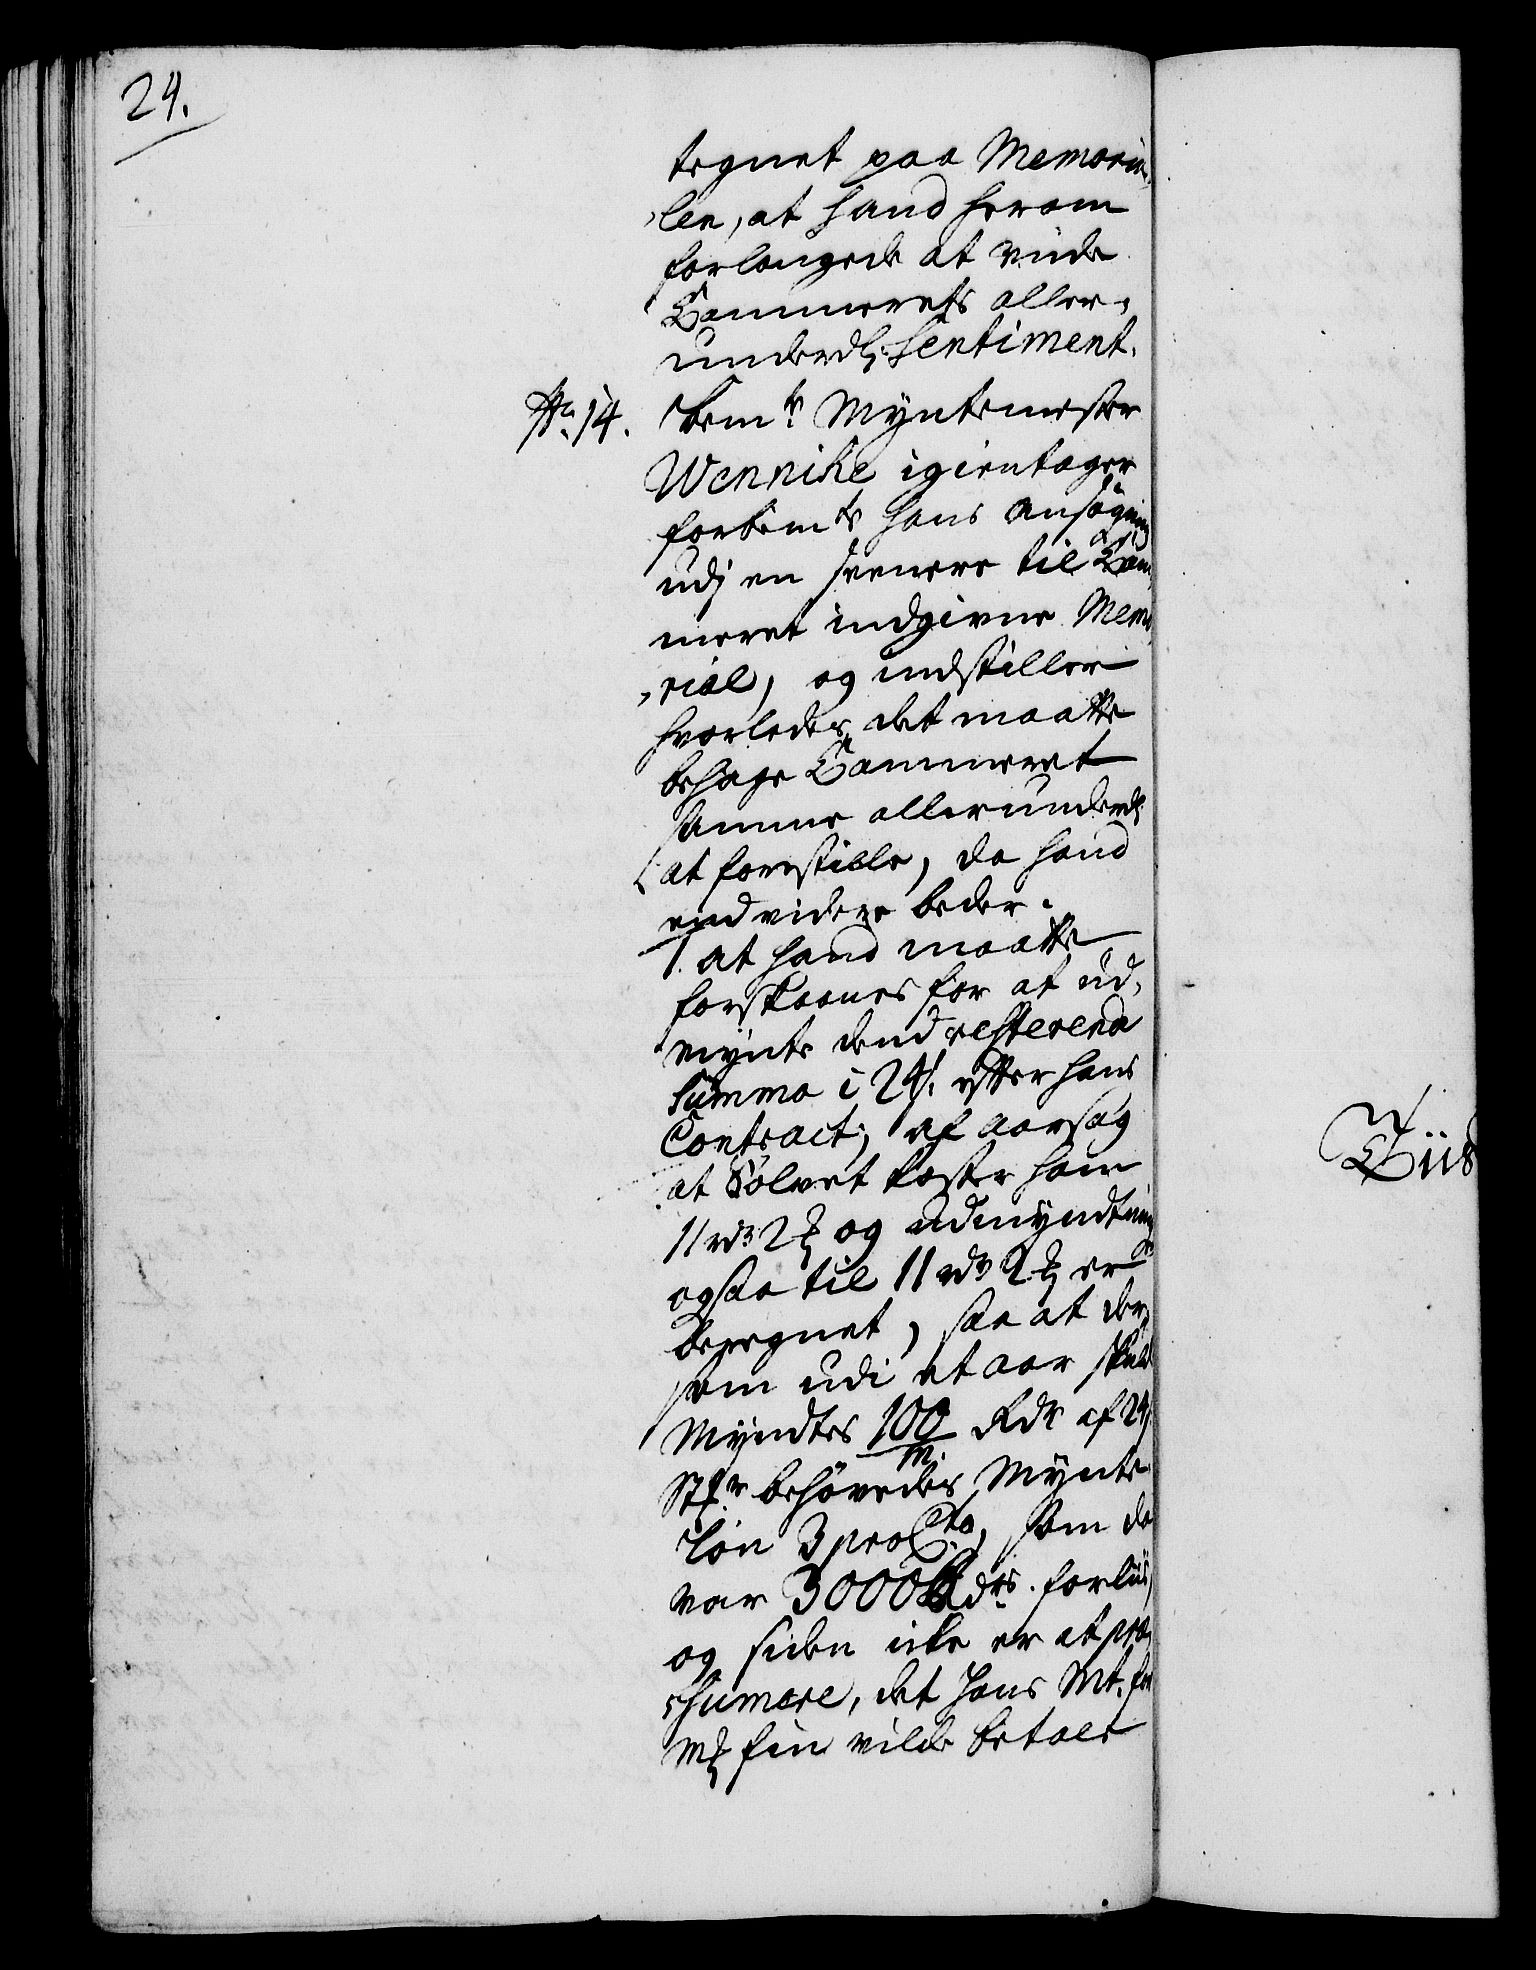 24.
tegnet paa Memoria„
„len, at hand herom
forlangede at viide
Cammerets aller„
underd: Sentiment.
No 14. Bemte Myntemester
Wennike igientager
forbemte hans Ansøgning
udj en seenere til Cam„
meret indgivne Memo„
„rial, og indstiller
hvorledes det maatte
behage Cammeret
samme allerunderd:
at forestille, da hand
end videre beder.
1. at hand maatte
forskaanes for at ud„
mynte dend resterende
Summa i 24 s. efter hans
Contract, af aarsag
at Sølvet koster ham
11 rdr 2 mk og Udmyndtning
ogsaa til 11 rdr 2 mk er
beregnet, saa at der„
som udi et aar skulde
Myndtes 100/m. Rdr af 24 s.
Stkr behøvedes Mynte
løn 3 pro Cto, som da
var 3000 Rdrs. forliis,
og siden icke er at præ„
„sumere, det Hans Mt. for
Mk fin vilde betale
Biis